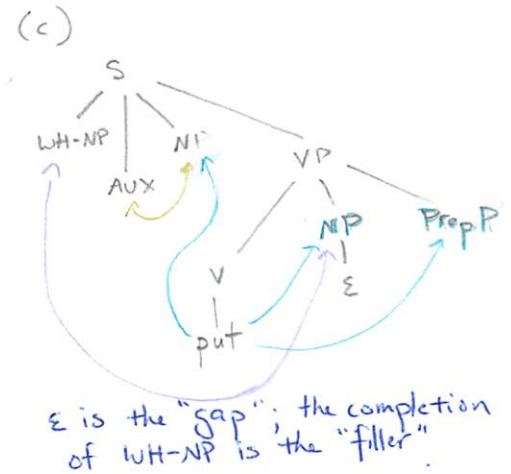 (c)
S
WH-NP
NP
AUX
VP
NP
PrepP
V
ε
put
ε is the "gap"; the completion
of WH-NP is the "filler"